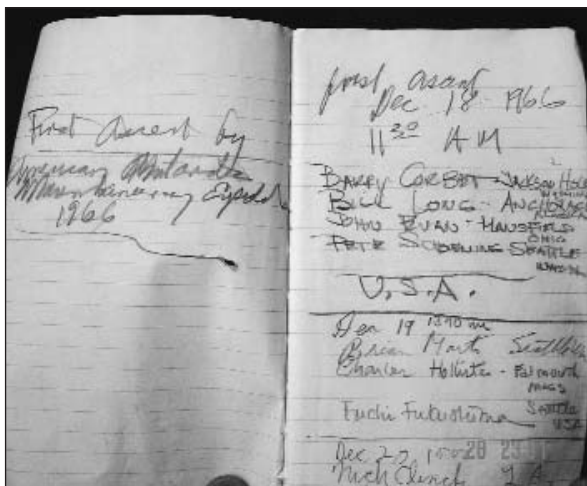 First Ascent by
American Antarctic
Mountaineering Exped.
1966
first ascent
Dec 18 1966
11 30 AM
BARRY CORBET - JACKSON HOLE
WYOMING
BILL LONG - ANCHORAGE
ALASKA
JOHN EVANS - MANSFIELD
OHIO
PETE SCHOENING SEATTLE
WASH
U.S.A.
Dec 19
Brian Marts Seattle
Charles Hollister - Falmouth
MASS
Eiichi Fukushima Seattle
USA
Dec 20
Nich Clinch L.A.